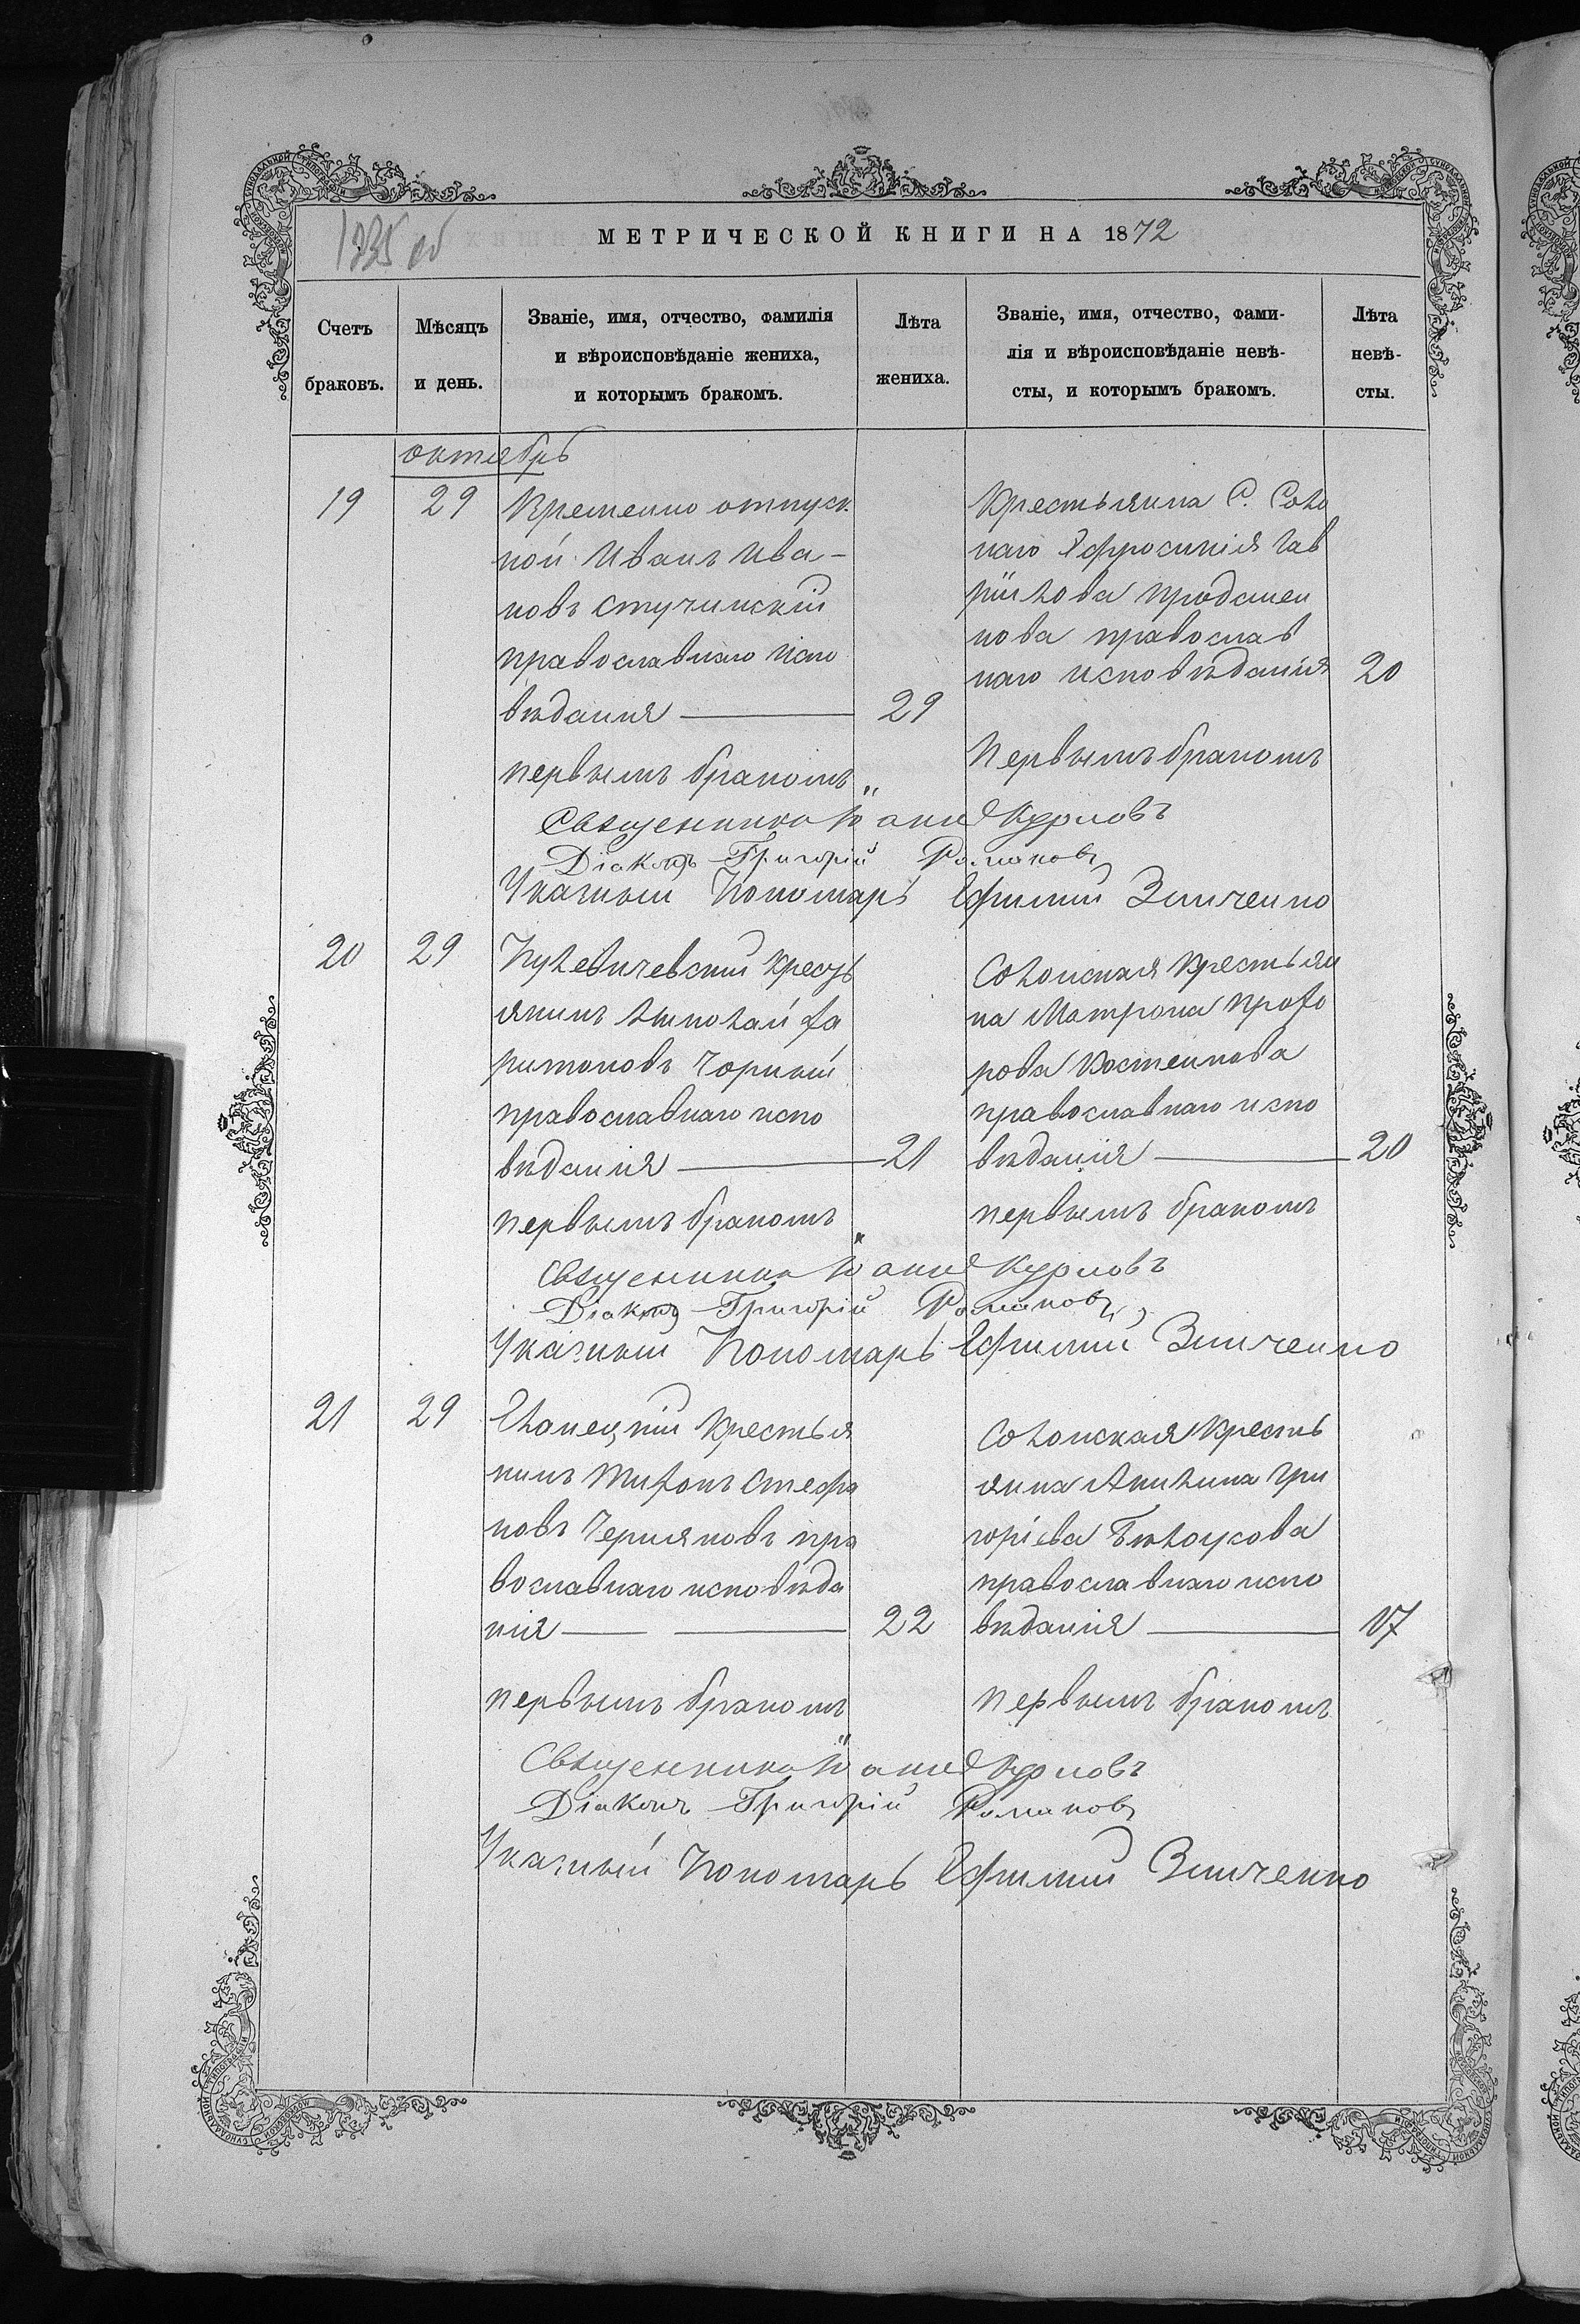 1335 об
МЕТРИЧЕСКОЙ КНИГИ НА 1872
Счетъ браковъ.
Мѣсяцъ и день.
Званіе, имя, отчество, фамилія
и вѣроисповѣданіе жениха,
и которымъ бракомъ.
Лѣта
жениха.
Званіе, имя, отчество, фами-
лія и вѣроисповѣданіе невѣ-
сты, и которымъ бракомъ.
Лѣта
невѣ-
сты.
октябрь
19 29
Временно отпуск
ной Иванъ Ива-
новъ Стучинскій
православнаго испо
вѣданія 29
первымъ бракомъ
Крестьянка С. Соло
наго Ефросинія Гав
ріилова
православ
наго исповѣданія 20
Первымъ бракомъ
Священникъ Іоаннъ Курловъ
Діаконъ Григорій Романовъ
Указный Пономарь Ефимій Зинченко
20 29
Кулевичевскій кресть
янинъ Николай Ха
ритоновъ Чорный
православнаго испо
вѣданія 21
первымъ бракомъ
Солонская крестьян
ка Матрона Прохо
рова Костенкова
православнаго испо
вѣданія 20
первымъ бракомъ
Священникъ Іоаннъ Курловъ
Діаконъ Григорій Романовъ
Указный Пономарь Ефимій Зинченко
21 29
Еланецкій крестья
нинъ Тихонъ Стефа
новъ Черняковъ пра
вославнаго исповѣда
нія 22
первымъ бракомъ
Солонская кресть
янка Акилина Гри
горіева Бѣлоусова
православнаго испо
вѣданія 17
первымъ бракомъ
Священникъ Іоаннъ Курловъ
Діаконъ Григорій Романовъ
Указный Пономарь Ефимій Зинченко